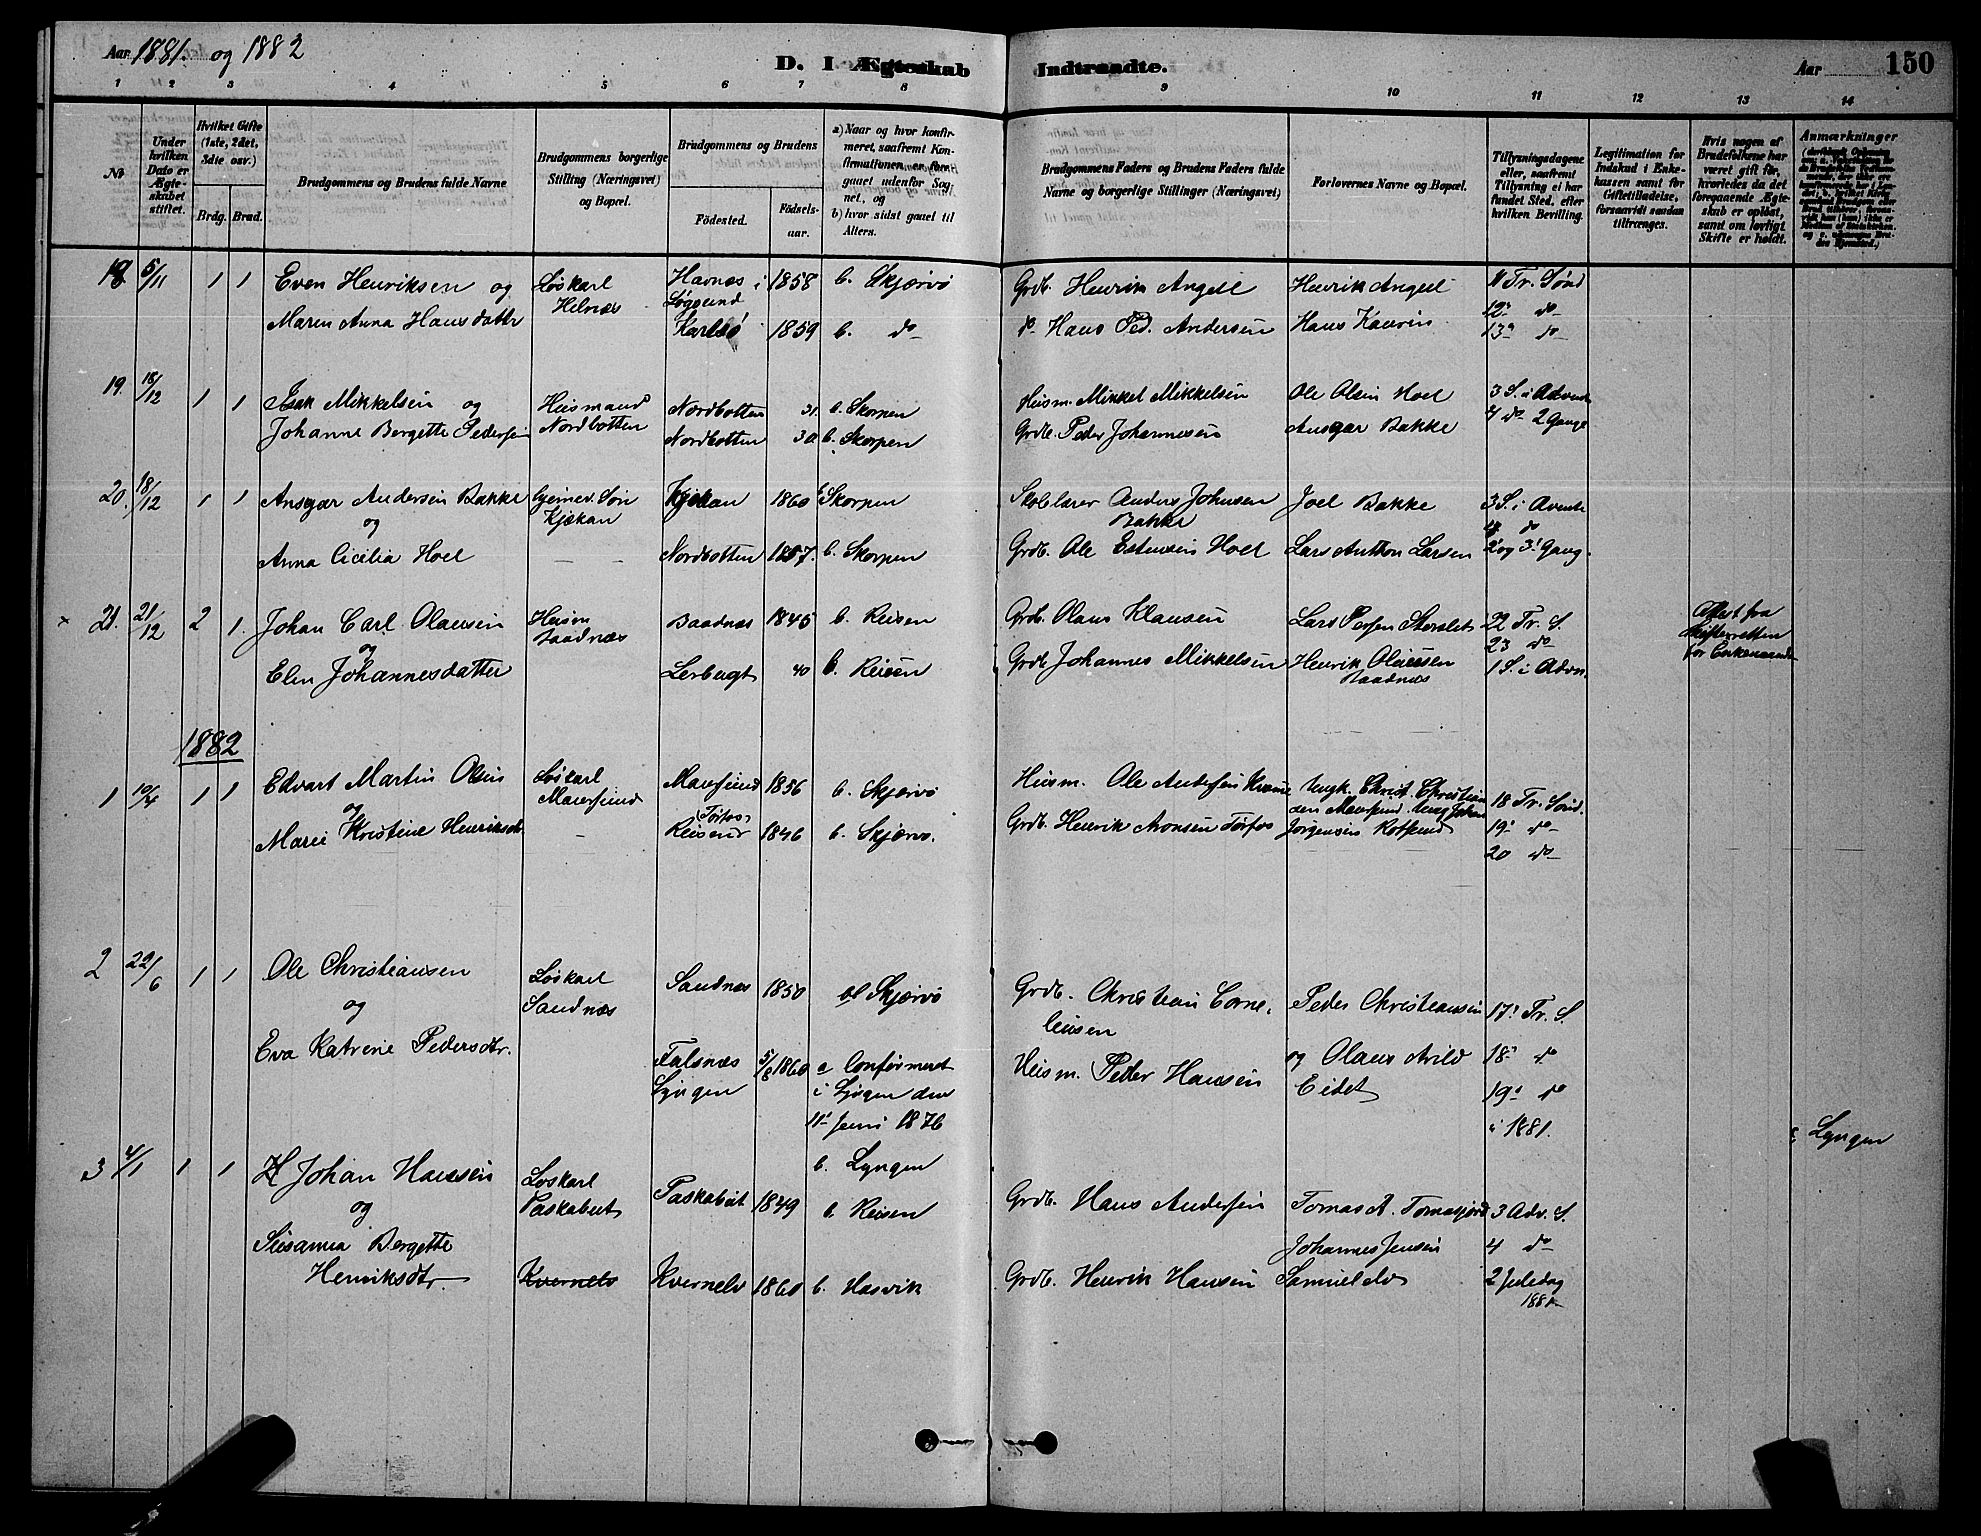 Aar 1881. og 1882
D. I Ægteskab Indtraadte.
Aar 150
1 2 3 4 5 6 7 8 9 10 11 12 13 14
No
Under hvilken Dato er Ægteskabet stiftet.
Hvilket Gifte (1ste, 2det, 3die osv.)
Brdg. Brud.
Brudgommens og Brudens fulde Navne
Brudgommens borgerlige Stilling (Næringsvei) og Bopæl.
Brudgommens og Brudens
Fødested. Fødselsaar.
a) Naar og hvor konfirmeret, saafremt Konfirmationen er foregaaet udenfor Sognet, og
b) hvor sidst gaaet til Alters.
Brudgommens Faders og Brudens Faders fulde Navne og borgerlige Stillinger (Næringsvei)
Forlovernes Navne og Bopæl.
Tillysningsdagene eller, saafremt Tillysning ei har fundet Sted, efter hvilken Bevilling.
Legitimation for Indskud i Enkekassen samt for Giftetilladelse, forsaavidt saadan tiltrænges.
Hvis nogen af Brudefolkene har været gift før, hvorledes da det foregaaende Ægteskab er opløst, samt om lovligt Skifte er holdt.
Anmærkninger
18 5/11 1 1 Even Henriksen og Løskarl Havnæs i 1858 b. Skjærvø Grdb. Henrik Angell Henrik Angell 11 Tr. Sønd
Helnæs Løgsund 12' do
Maren Anna Hansdatter Karlsø 1859 b. do do Hans Ped. Andersen Hans Kaurin 13' do
19. 18/12 1 1 Isak Mikkelsen og Huismand Nordbotten 31. b. Skorpen Huism. Mikkel Mikkelsen Ole Olsen Hoel 3 S. i Advent
Johanne Bergette Pedersen Nordbotten Nordbotten 30 b. Skorpen Grdb. Peder Johannesen Ansgar Bakke 4 do 2 Gange
20. 18/12 1 1 Ansgar Andersen Bakke Søn Kjækan 1860 Skorpen Skolelærer Anders Johnsen Joel Bakke 3 S. i Avente
og Kjækan Bakke 4 do
Anna Cicilia Hoel Nordbotten 1857. b. Skorpen Grdb. Ole Hoel Lars Anthon Larsen 2' og 3' Gang.
21. 21/12 2 1. Johan Carl Olausen Huism Baadnæs 1845 b. Reisen Grdb. Olaus Klausen Lars Storslet 22 Tr. S.
og Baadnæs 23 do
Elen Johannesdatter Lerbugt 40 b. Reisen Grdb Johannes Mikkelsen Henrik Olaussen 1 S. i Advn.
Baadnæs
Attest fra
Skifteretten
for Enkemand
1882
1 10/4 1 1 Edvart Martin Olsen Løskarl Maursund 1856 b. Skjærvø Huism. Ole Andersen Ungk. Christ. Christian 18 Tr. Sønd.
og Maursund (Torfos) sen Maursund. Ung Johan
Marie Kristine Henriksdt. Reisen 1846 b. Skjærvø. Grdb. Henrik Aronsen Torfos Jørgensen Rotsund 19' do
20 do
2 22/6 1 1 Ole Christiansen Løskarl Sandnæs 1850 Skjærvø Grdb. Christian Corne- Peder Christiansen 17' Tr. S.
og Sandnæs liusen
Eva Katrine Pedersdtr. Falsnæs 5/8 1860 a Confirmeret Huism. Peder Hansen og Olaus Arild 18' do
Lyngen i Lyngen den Eidet 19' do
11' Juni 1876 i 1881.
b. Lyngen
c Lyngen
3 4/1 1 1 Johan Hansen Løskarl Taskabut 1849 b. Reisen Grdb. Hans Andersen Tomas A. Tomasjord 3 Adv. S.
og Taskabut
Susanna Bergette Johannes Jensen 4 do
Henriksdtr. Kvernelv Kvernelv 1860 b. Hasvik Grdb. Henrik Hansen Samuelelv 2 Juledag
1881